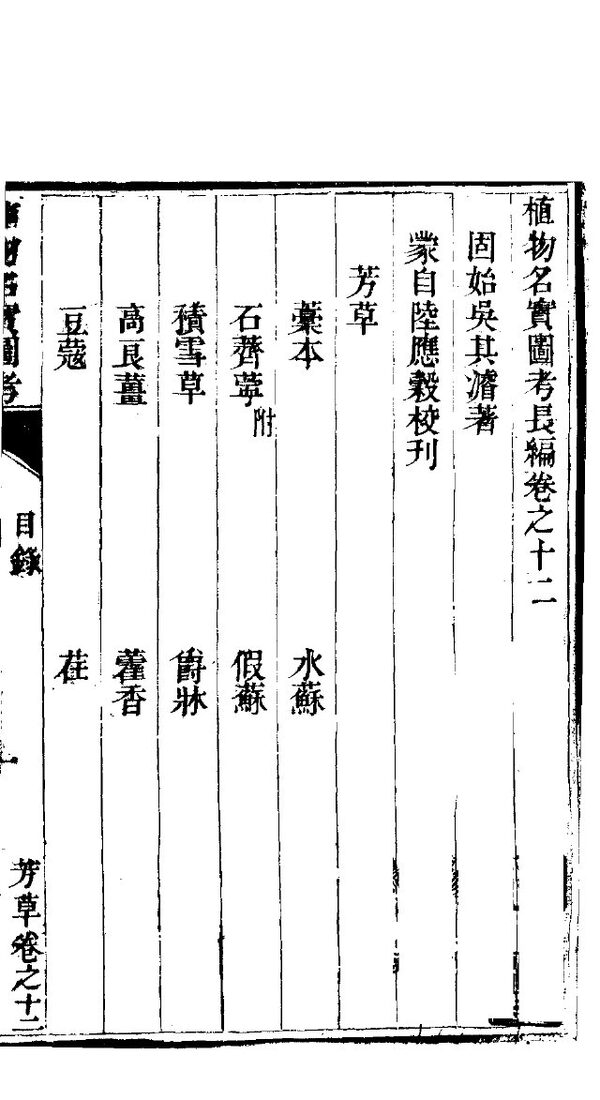 植物名實圖考長編卷之十二
固始吳其濬著
蒙自陸應穀校刋
芳草
藁本　水蘇
石薺薴附　假蘇
積雪草　爵牀
高良薑　藿香
豆蔻　荏
植物名實圖考　目錄　一　芳草卷之十二